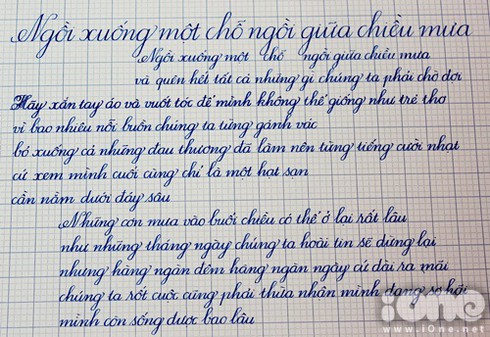 Ngồi xuống một chỗ ngồi giữa chiều mưa
Ngồi xuống một chỗ ngồi giữa chiều mưa
và quên hết tất cả những gì chúng ta phải chờ đợi
Hãy xắn tay áo và vuốt tóc để mình không thể giống như trẻ thơ
vì bao nhiêu nỗi buồn chúng ta từng gánh vác
bỏ xuống cả những đau thương đã làm nên từng tiếng cười nhạt
cứ xem mình cuối cùng chỉ là một hạt sạn
cần nằm dưới đáy sâu
Những cơn mưa vào buổi chiều có thể ở lại rất lâu
như những tháng ngày chúng ta hoài tin sẽ dừng lại
nhưng hàng ngàn đêm hàng ngàn ngày cứ dài ra mãi
chúng ta rốt cuộc cũng phải thừa nhận mình đang sợ hãi
mình còn sống được bao lâu
iOne
www.iOne.net